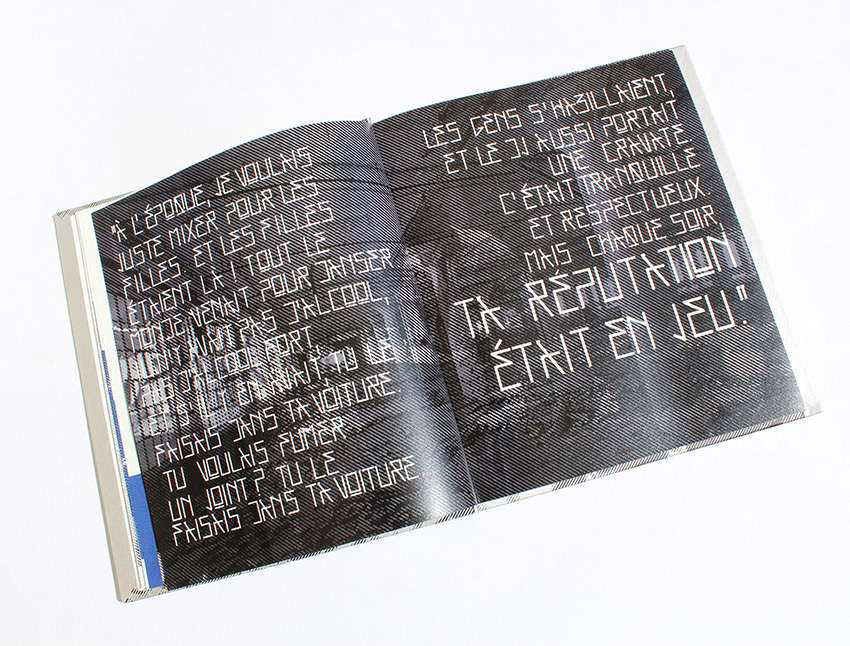 "À L'ÉPOQUE JE VOULAIS
JUSTE MIXER POUR LES
FILLES. ET LES FILLES
ÉTAIENT LÀ ! TOUT LE
MONDE VENAIT POUR DANSER
IL N'Y AVAIT PAS D'ALCOOL,
PAS D'ALCOOL FORT,
ET S'IL Y EN AVAIT, TU LE
FAISAIS DANS TA VOITURE
TU VOULAIS FUMER
UN JOINT ? TU LE
FAISAIS DANS TA VOITURE.
LES GENS S'HABILLAIENT,
ET LE DJ AUSSI PORTAIT
UNE CRAVATE
C'ÉTAIT TRANQUILLE
ET RESPECTUEUX.
MAIS CHAQUE SOIR,
TA RÉPUTATION
ÉTAIT EN JEU."